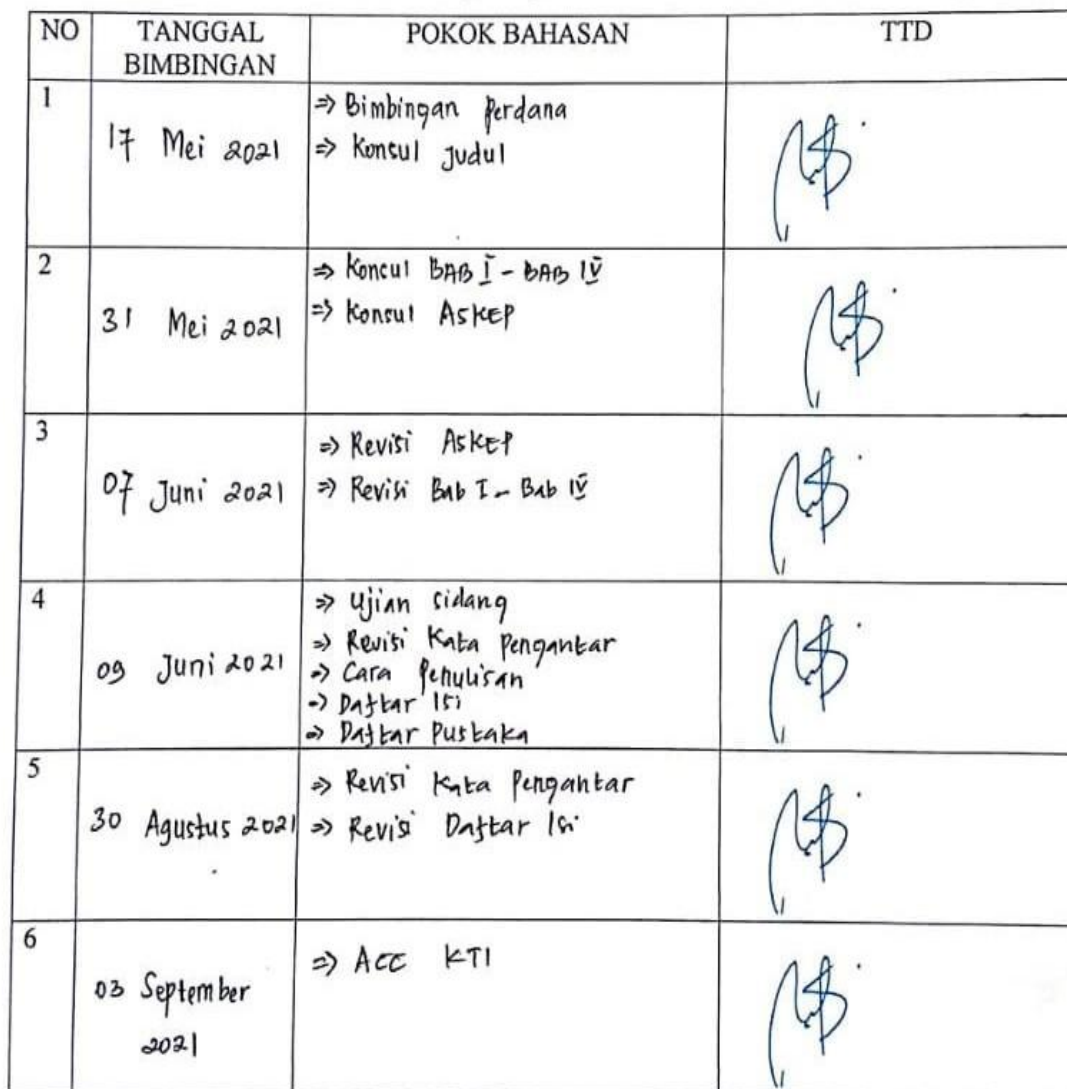 NO TANGGAL BIMBINGAN POKOK BAHASAN TTD
1
17 Mei 2021
⇒ Bimbingan Perdana
⇒ Konsul Judul
2
31 Mei 2021
⇒ Koncul BAB I - BAB IV
⇒ Konsul ASKEP
3
07 Juni 2021
⇒ Revisi ASKEP
⇒ Revisi Bab I - Bab IV
4
09 Juni 2021
⇒ Ujian Sidang
⇒ Revisi Kata Pengantar
⇒ Cara Penulisan
⇒ Daftar Isi
⇒ Daftar Pustaka
5
30 Agustus 2021
⇒ Revisi Kata Pengantar
⇒ Revisi Daftar Isi
6
03 September
2021
⇒ Acc KTI